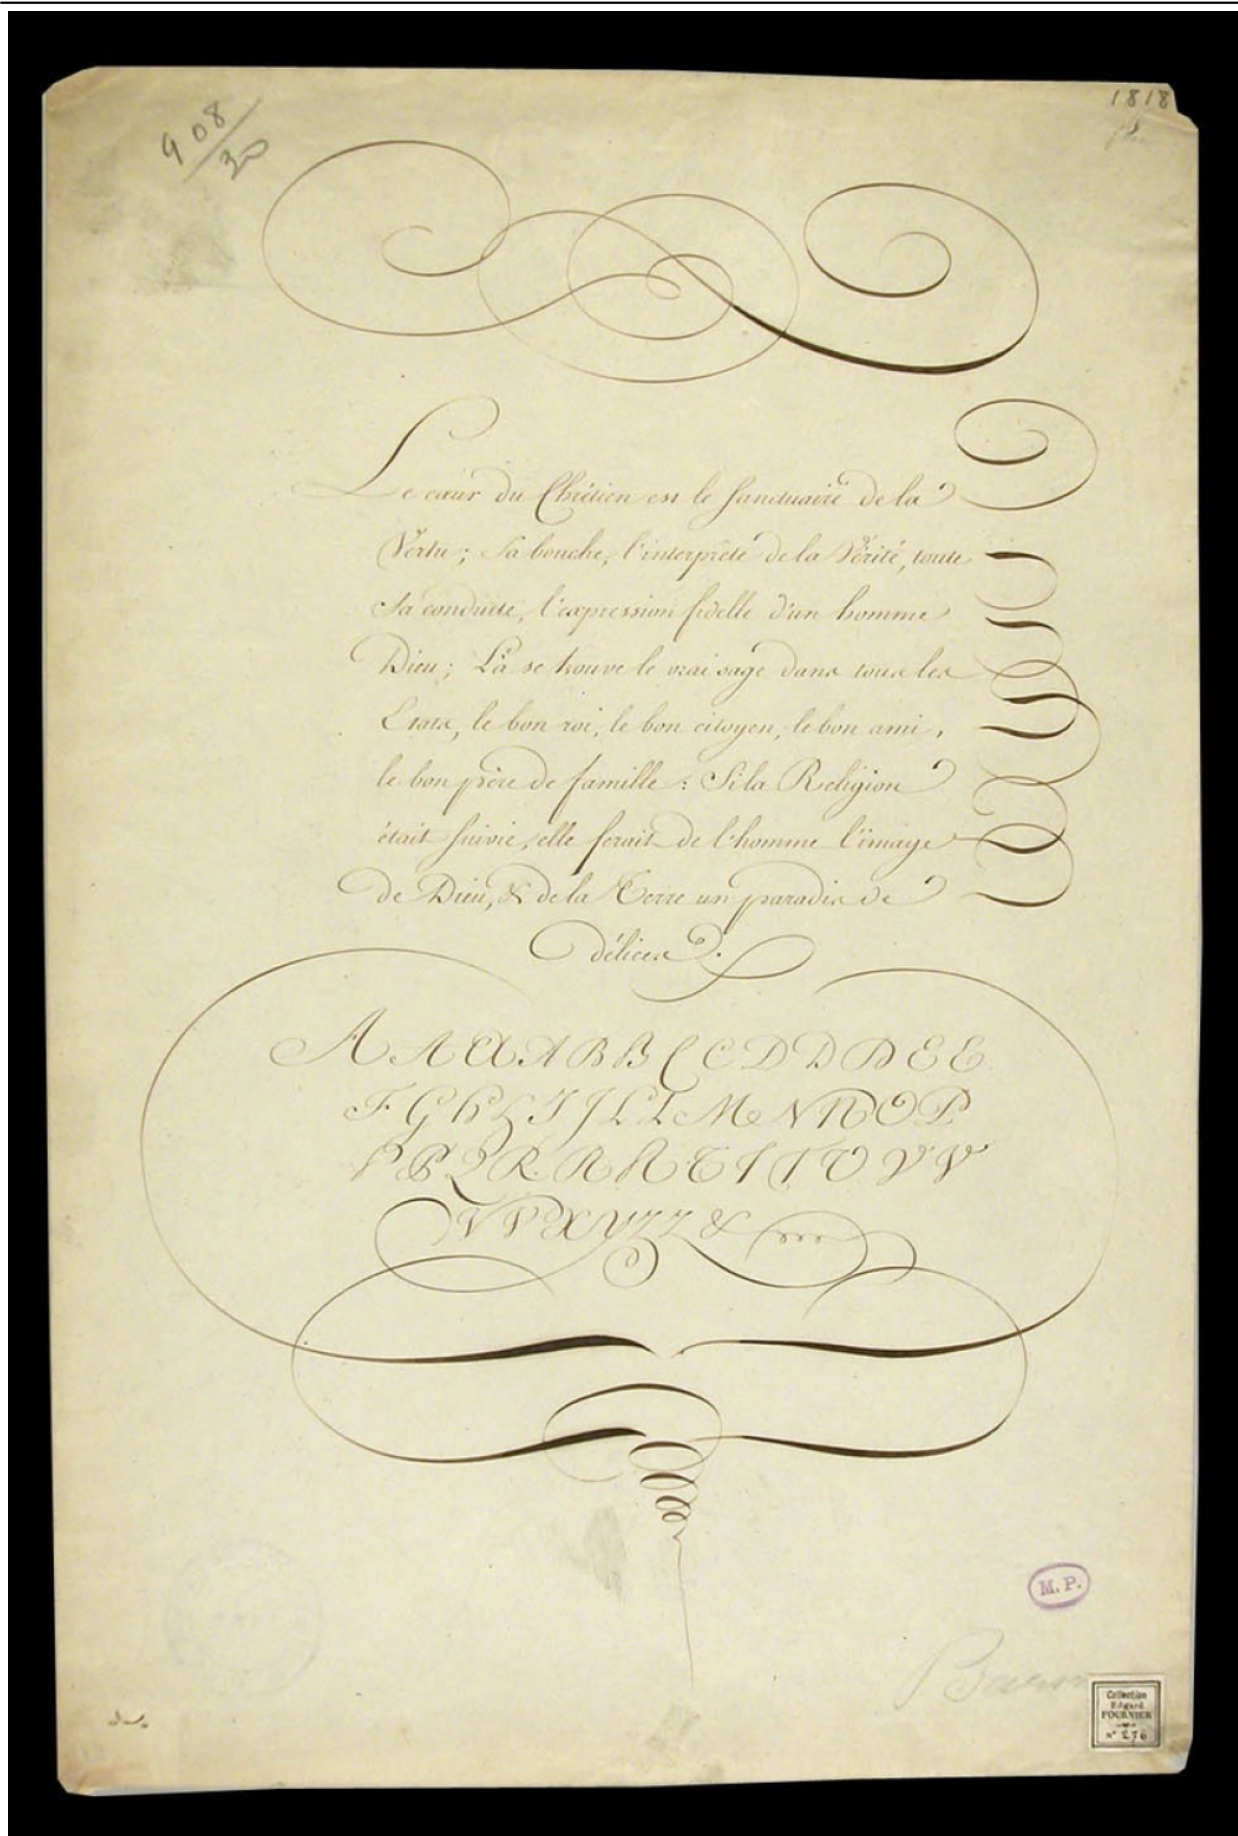 908/30
1818
Le cœur du Chrétien est le sanctuaire de la
Vertu ; sa bouche, l'interprète de la Vérité, toute
sa conduite, l'expression fidelle d'un homme
Dieu ; Là se trouve le vrai sage dans tous les
Etats, le bon roi, le bon citoyen, le bon ami,
le bon père de famille : Si la Religion
était suivie, elle ferait de l'homme l'image
de Dieu, & de la Terre un paradis de
délices.
A A A A B B C C D D D E E
F G H H I J L L M N N O P
P P Q R R R T T T V V V
V V X Y Z Z &
M.P.
Collection
Edgard
FOURNIER
N° 276